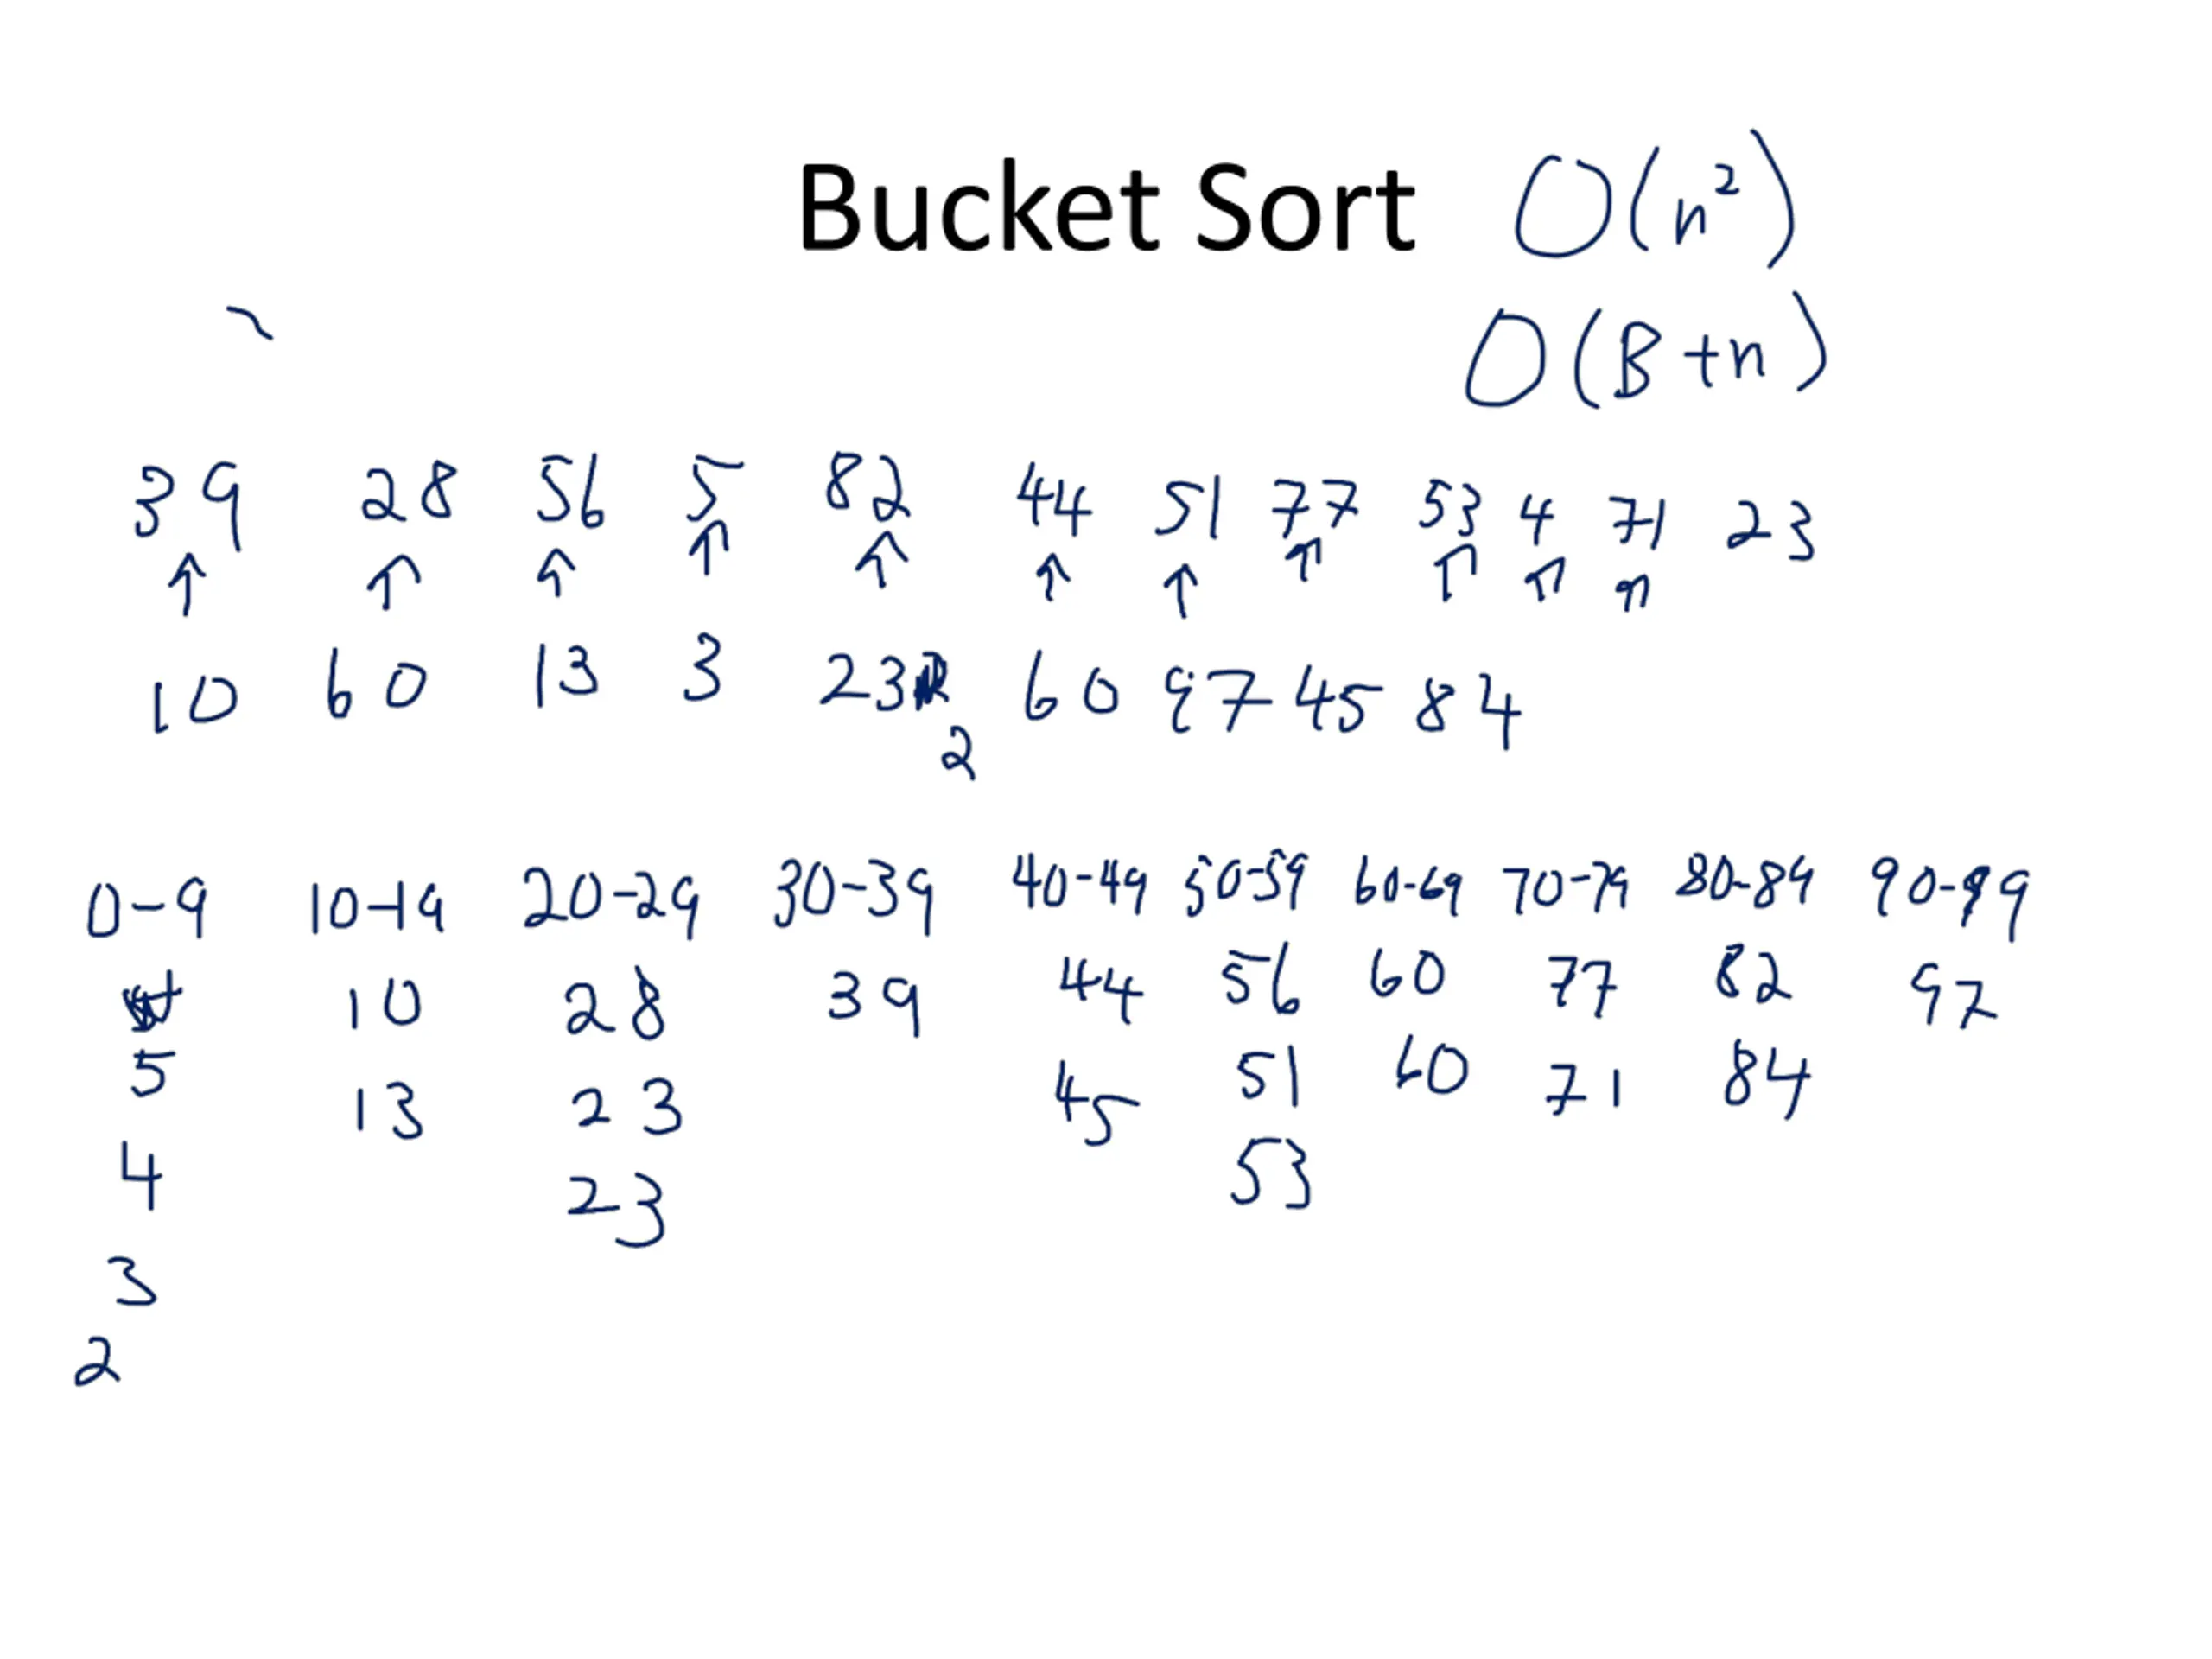 Bucket Sort O(n²)
O(B+n)
39 28 56 5 82 44 51 77 53 4 71 23
10 60 13 3 23 2 60 97 45 84
0-9 10-19 20-29 30-39 40-49 50-59 60-69 70-79 80-89 90-99
10 28 39 44 56 60 77 82 97
5 13 23 45 51 60 71 84
4 23 53
3
2